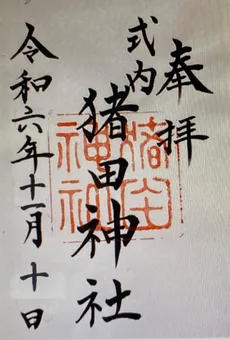 奉拝
式内
猪田神社
令和六年十一月十日
猪田
神社